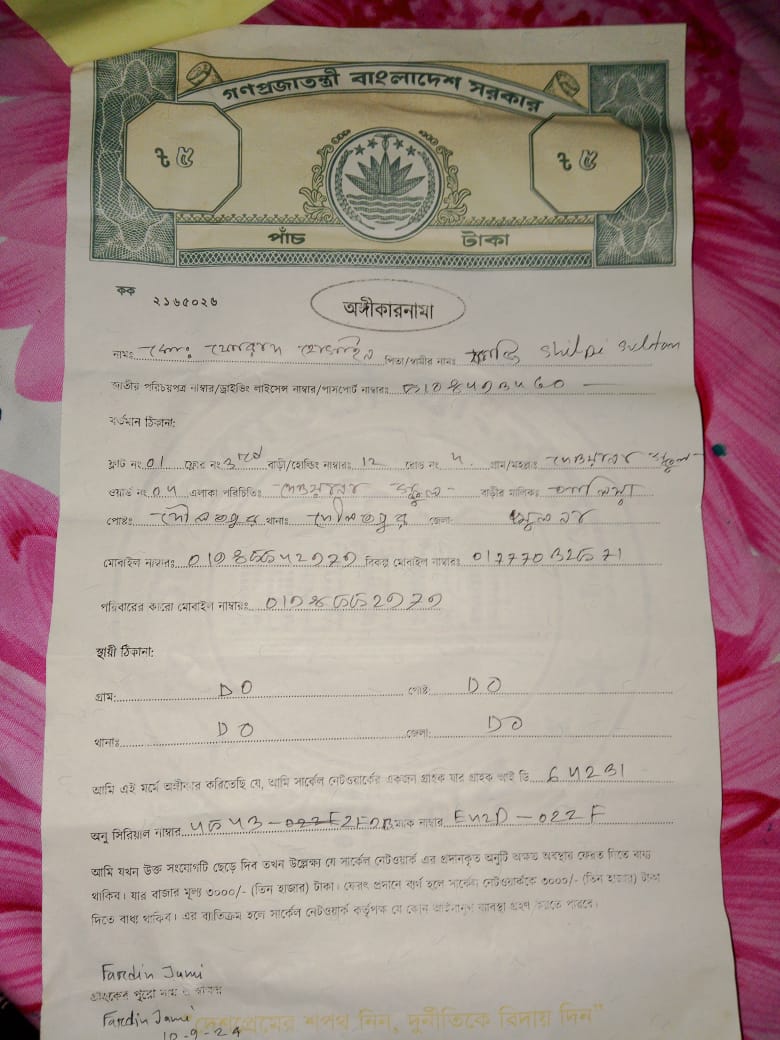 গণপ্রজাতন্ত্রী বাংলাদেশ সরকার
৳ ৫ ৳ ৫
পাঁচ টাকা
কক ২১৬৫০২৬
অঙ্গীকারনামা
নামঃ মোঃ হোসাইন পিতা/স্বামীর নামঃ Shilpi Sultan
জাতীয় পরিচয়পত্র নাম্বার/ড্রাইভিং লাইসেন্স নাম্বার/পাসপোর্ট নাম্বারঃ
বর্তমান ঠিকানা:
ফ্লাট নং 01 ফ্লোর নং 3rd বাড়ী/হোল্ডিং নাম্বারঃ 12 রোড নং 4 গ্রাম/মহল্লাঃ
ওয়ার্ড নং 04 এলাকা পরিচিতিঃ বাড়ীর মালিকঃ
পোষ্টঃ দৌলতপুর থানাঃ দৌলতপুর জেলা: খুলনা
মোবাইল নাম্বারঃ বিকল্প মোবাইল নাম্বারঃ
পরিবারের কারো মোবাইল নাম্বারঃ
স্থায়ী ঠিকানা:
গ্রাম: DO পোষ্ট: DO
থানাঃ DO জেলা: DO
আমি এই মর্মে অঙ্গীকার করিতেছি যে, আমি সার্কেল নেটওয়ার্কের একজন গ্রাহক যার গ্রাহক আই ডি 64231
অনু সিরিয়াল নাম্বার ম্যাক নাম্বার E42D-022F
আমি যখন উক্ত সংযোগটি ছেড়ে দিব তখন উল্লেক্ষ্য যে সার্কেল নেটওয়ার্ক এর প্রদানকৃত অনুটি অক্ষত অবস্থার ফেরত দিতে বাধ্য
থাকিব। যার বাজার মূল্য ৩০০০/- (তিন হাজার) টাকা। ফেরৎ প্রদানে ব্যর্থ হলে সার্কেল নেটওয়ার্ককে ৩০০০/- (তিন হাজার) টাকা
দিতে বাধ্য থাকিব। এর ব্যতিক্রম হলে সার্কেল নেটওয়ার্ক কর্তৃপক্ষ যে কোন আইনানুগ ব্যবস্থা গ্রহণ করতে পারবে।
Fardin Jami
গ্রাহকের পুরো নাম ও স্বাক্ষর
Fardin Jami
10-9-24
"দেশপ্রেমের শপথ নিন, দুর্নীতিকে বিদায় দিন"